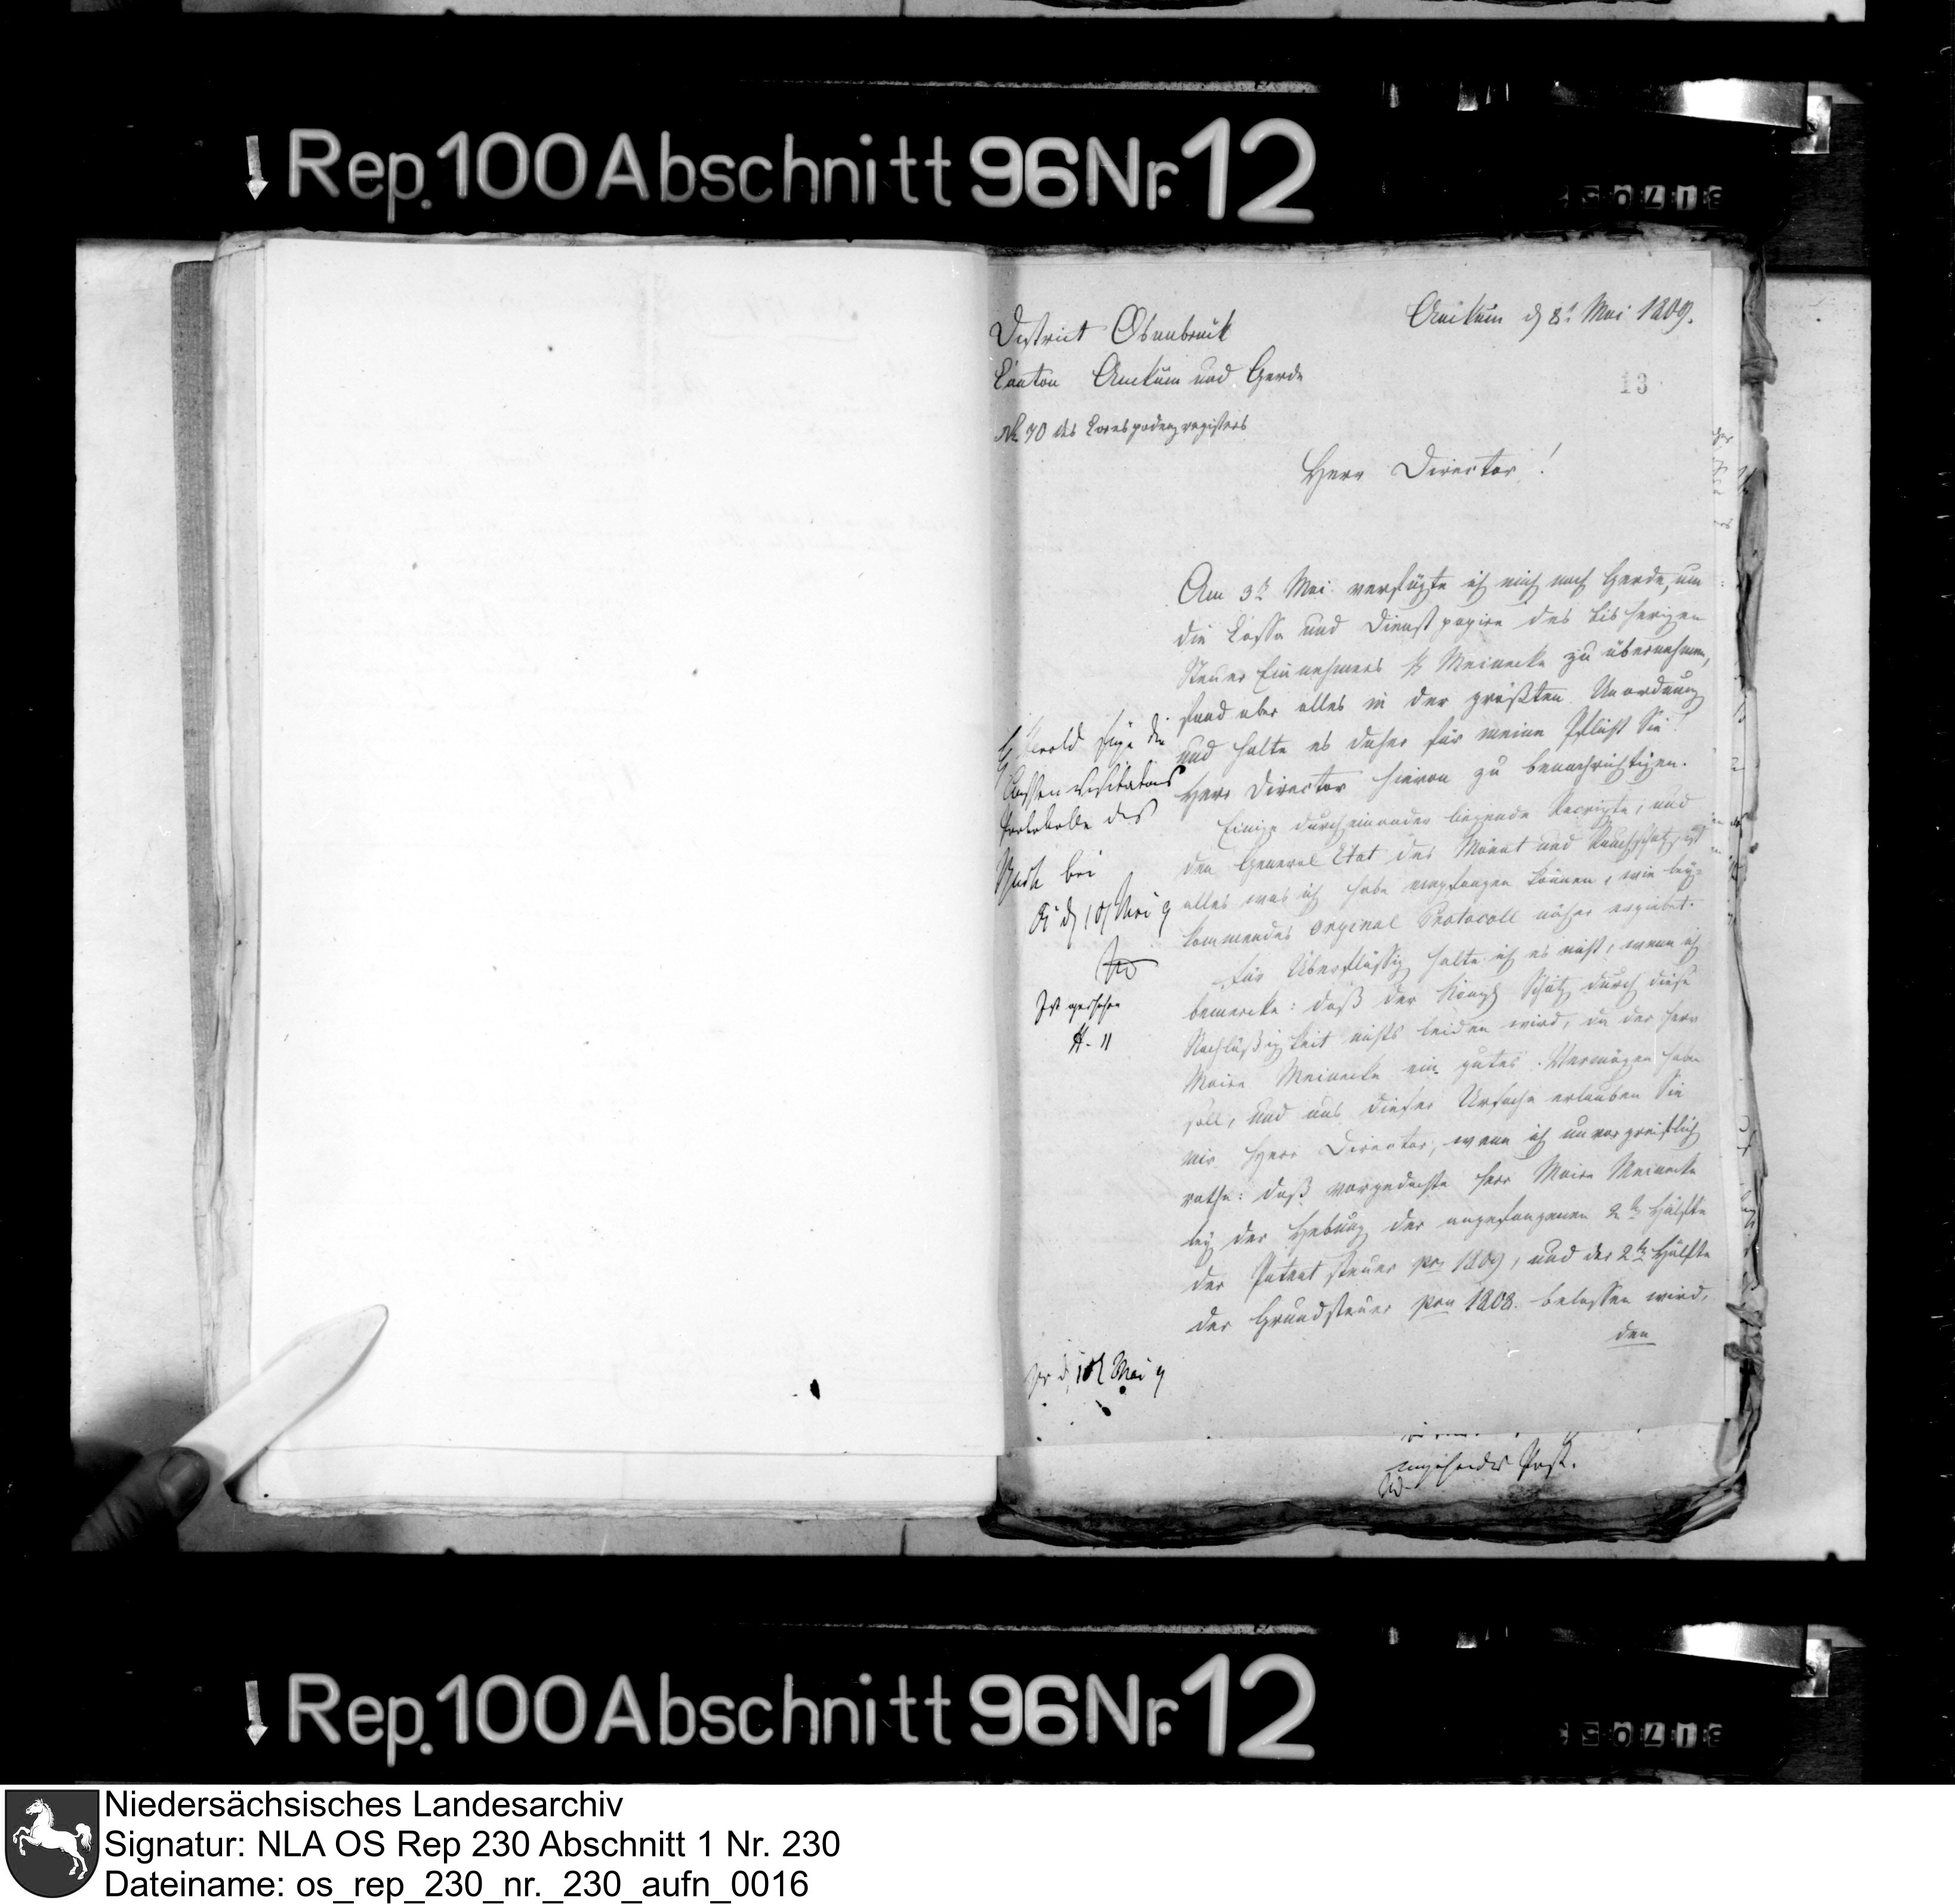 Rep. 100 Abschnitt 96 Nr. 12
District Osnabrück
Canton Anckum und Gerde
No 70 des Correspodenzregisters
Anckum d 8t Mai 1809.
13
Herr Director!
Am 3t Mai verfügte ich mich nach Gerde, um
die Cassa und Dienstpapire des bisherigen
Steuer Einnehmers H Meinecke zu übernehmen,
fand aber alles in der größten Unordnung
und halte es daher für meine Pflicht Sie!
Herr Director hievon zu benachrichtigen.
Einige durcheinander liegende Recripte, und
den General Etat des Monat und Rauchschatz, ist
alles was ich habe empfangen können, wie bey-
kommendes Orginal Protocoll näher ergiebet.
Für Überflüssig halte ich es nicht, wenn ich
bemercke: daß der Königl Schatz durch diese
Nachläßigkeit nichts leiden wird, da der Herr
Maire Meinecke ein gutes Vermögen habe
soll, und aus dieser Ursache erlauben Sie
mir Herr Director, wenn ich unvorgreiflich
rathe: daß vorgedachte Herr Maire Meinecke
bey der Hebung der angefangenen 2te Hälfte
der Patent steuer pro 1809, und der 2te Hälfte
der Grundsteuer pro 1808. belassen wird,
den
füge die
Cassen visitations
Protokolle des
bei
d 10 Mai 9
Ist geschehen
H. 11
Pr d, 10t Mai 9
umgehender Post.
Rep. 100 Abschnitt 96 Nr. 12
Niedersächsisches Landesarchiv
Signatur: NLA OS Rep 230 Abschnitt 1 Nr. 230
Dateiname: os_rep_230_nr._230_aufn_0016